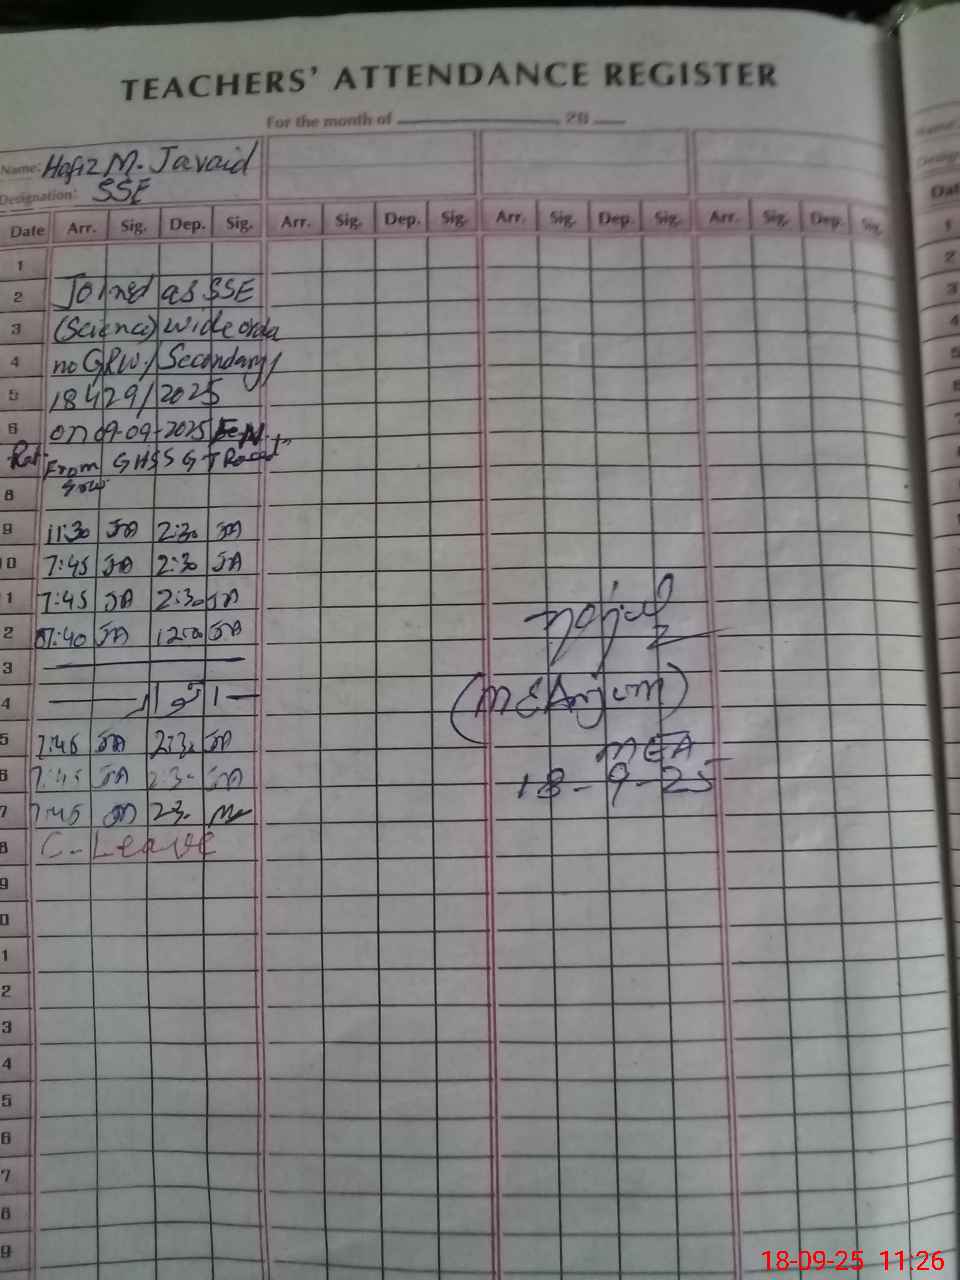 TEACHERS' ATTENDANCE REGISTER
For the month of 20
Name: Hafiz M. Javaid
Designation: SSE
Date Arr. Sig. Dep. Sig. Arr. Sig. Dep. Sig. Arr. Sig. Dep. Sig. Arr. Sig. Dep. Sig.
1
2 Joined as SSE
3 (Science) wide order
4 no GRW/Secondary/
5 18429/2025
6 on 09-09-2025
From GHSS
8
9 11:30 JA 2:30 JA
0 7:45 JA 2:30 JA
1 7:45 JA 2:30 JA
2 07:40 JA 12:00 JA
3
4 اتوار
5 7:45 JA 2:30 JA
6 7:45 JA 2:30 JA
7 7:45 2:30
8 C-Leave
9
0
1
2
3
4
5
6
7
8
9
(M E Anjum)
MEA
18-9-25
Name:
Date
1
2
3
4
5
6
7
8
18-09-25 11:26